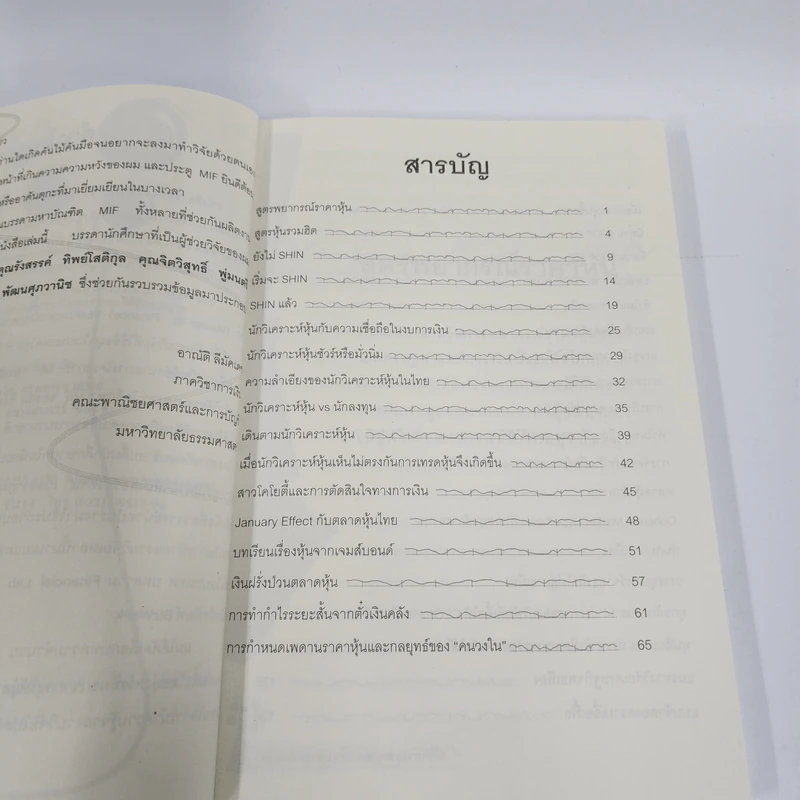 ท่านใดเกิดคันไม้คันมือจนอยากจะลงมาทำวิจัยด้วยตนเอง
หน้าที่เกินความความหวังของผม และประตู MIF ยินดีต้อน
หรืออาคันตุกะที่มาเยี่ยมเยียนในบางเวลา
บรรดามหาบัณฑิต MIF ทั้งหลายที่ช่วยกันผลิตงาน
หนังสือเล่มนี้ บรรดานักศึกษาที่เป็นผู้ช่วยวิจัยของผม
คุณรังสรรค์ ทิพย์โสติกุล คุณจิตวิสุทธิ์ พุ่มนตรี
พัฒนศุภวานิช ซึ่งช่วยกันรวบรวมข้อมูลมาประกอบ
อาณัติ ลีมัคเดช
ภาควิชาการเงิน
คณะพาณิชยศาสตร์และการบัญชี
มหาวิทยาลัยธรรมศาสตร์
สารบัญ
สูตรพยากรณ์ราคาหุ้น 1
สูตรหุ้นรวมฮิต 4
ยังไม่ SHIN 9
เริ่มจะ SHIN 14
SHIN แล้ว 19
นักวิเคราะห์หุ้นกับความเชื่อถือในงบการเงิน 25
นักวิเคราะห์หุ้นชัวร์หรือมั่วนิ่ม 29
ความลำเอียงของนักวิเคราะห์หุ้นในไทย 32
นักวิเคราะห์หุ้น vs นักลงทุน 35
เดินตามนักวิเคราะห์หุ้น 39
เมื่อนักวิเคราะห์หุ้นเห็นไม่ตรงกันการเทรดหุ้นจึงเกิดขึ้น 42
สาวโคโยตี้และการตัดสินใจทางการเงิน 45
January Effect กับตลาดหุ้นไทย 48
บทเรียนเรื่องหุ้นจากเจมส์บอนด์ 51
เงินฝรั่งป่วนตลาดหุ้น 57
การทำกำไรระยะสั้นจากตั๋วเงินคลัง 61
การกำหนดเพดานราคาหุ้นและกลยุทธ์ของ "คนวงใน" 65